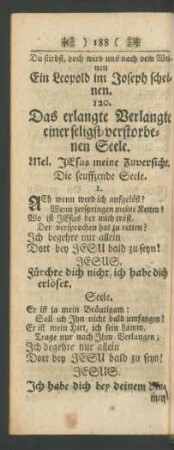 ) 188 (
Du stirbst, doch wird uns nach dem Wei-
nen
Ein Leopold im Joseph schei-
nen.
120.
Das erlangte Verlangte
einer seligst-verstorbe-
nen Seele.
Mel. JEsus meine Zuversicht.
Die seuffzende Seele.
1.
ACh wenn werd ich aufgelöst?
Wenn zerspringen meine Ketten?
Wo ist JEsus der mich tröst.
Der versprochen hat zu retten?
Ich begehre nur allein
Dort bey JESU bald zu seyn!
JESUS.
Fürchte dich nicht, ich habe dich
erlöset.
Seele.
Er ist ja mein Bräutigam:
Soll ich Ihn nicht bald umfangen?
Er ist mein Hirt, ich sein Lamm,
Trage nur nach Ihm Verlangen;
Ich begehre nur allein
Dort bey JESU bald zu seyn!
JESUS.
Ich habe dich bey deinem Na-
men